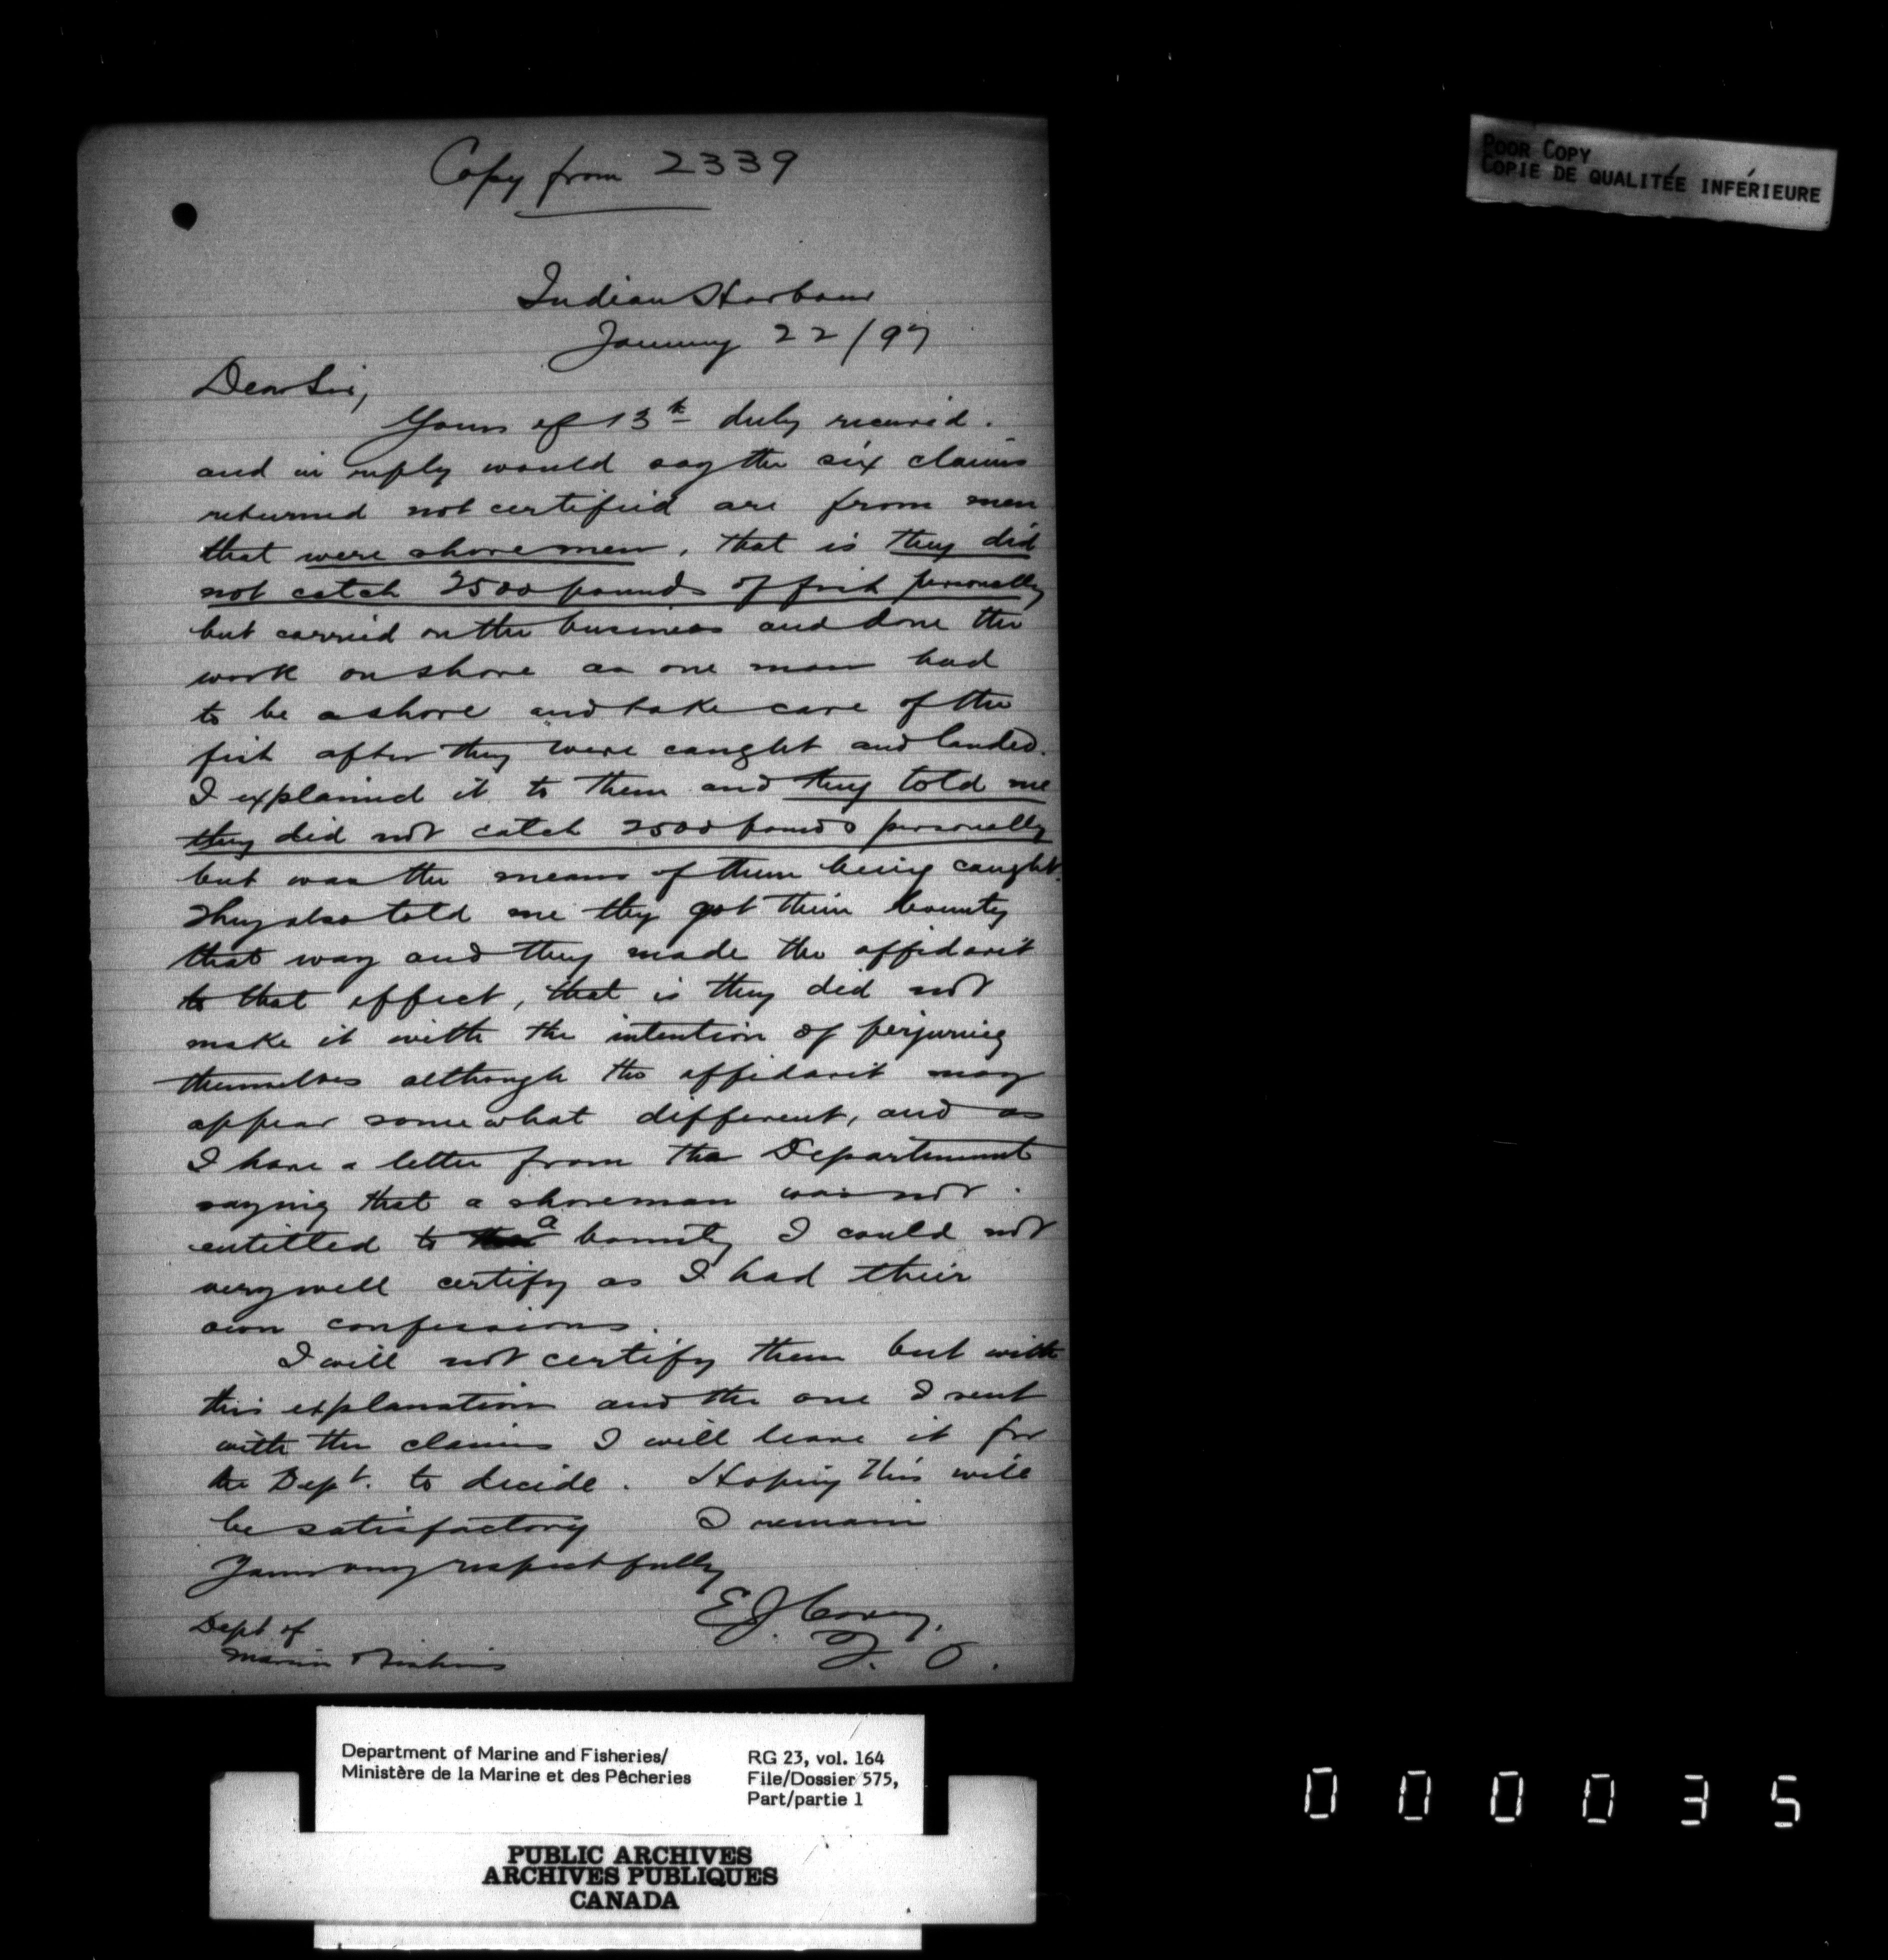 Copy from 2339
POOR COPY
COPIE DE QUALITÉE INFÉRIEURE
Indian Harbour
January 22/97
Dear Sir,
Yours of 13th duly received.
and in reply would say the six claims
returned not certified are from men
that were shoremen, that is they did
not catch 2500 pounds of fish personally
but carried on the business and done the
work on shore as one man had
to be ashore and take care of the
fish after they were caught and landed.
I explained it to them and they told me
they did not catch 2500 pounds personally
but was the means of them being caught.
They also told me they got their bounty
that way and they made the affidavit
to that effect, that is they did not
make it with the intention of perjuring
themselves although the affidavit may
appear somewhat different, and as
I have a letter from the Department
saying that a shoreman was not
entitled to a bounty I could not
very well certify as I had their
own confessions.
I will not certify them but with
this explanation and the one I sent
with the claims I will leave it for
the Dept. to decide. Hoping this will
be satisfactory I remain
Yours very respectfully
E J
F. O.
Dept of
Marine & Fisheries
Department of Marine and Fisheries/
Ministère de la Marine et des Pêcheries
RG 23, vol. 164
File/Dossier 575,
Part/partie 1
PUBLIC ARCHIVES
ARCHIVES PUBLIQUES
CANADA
000035